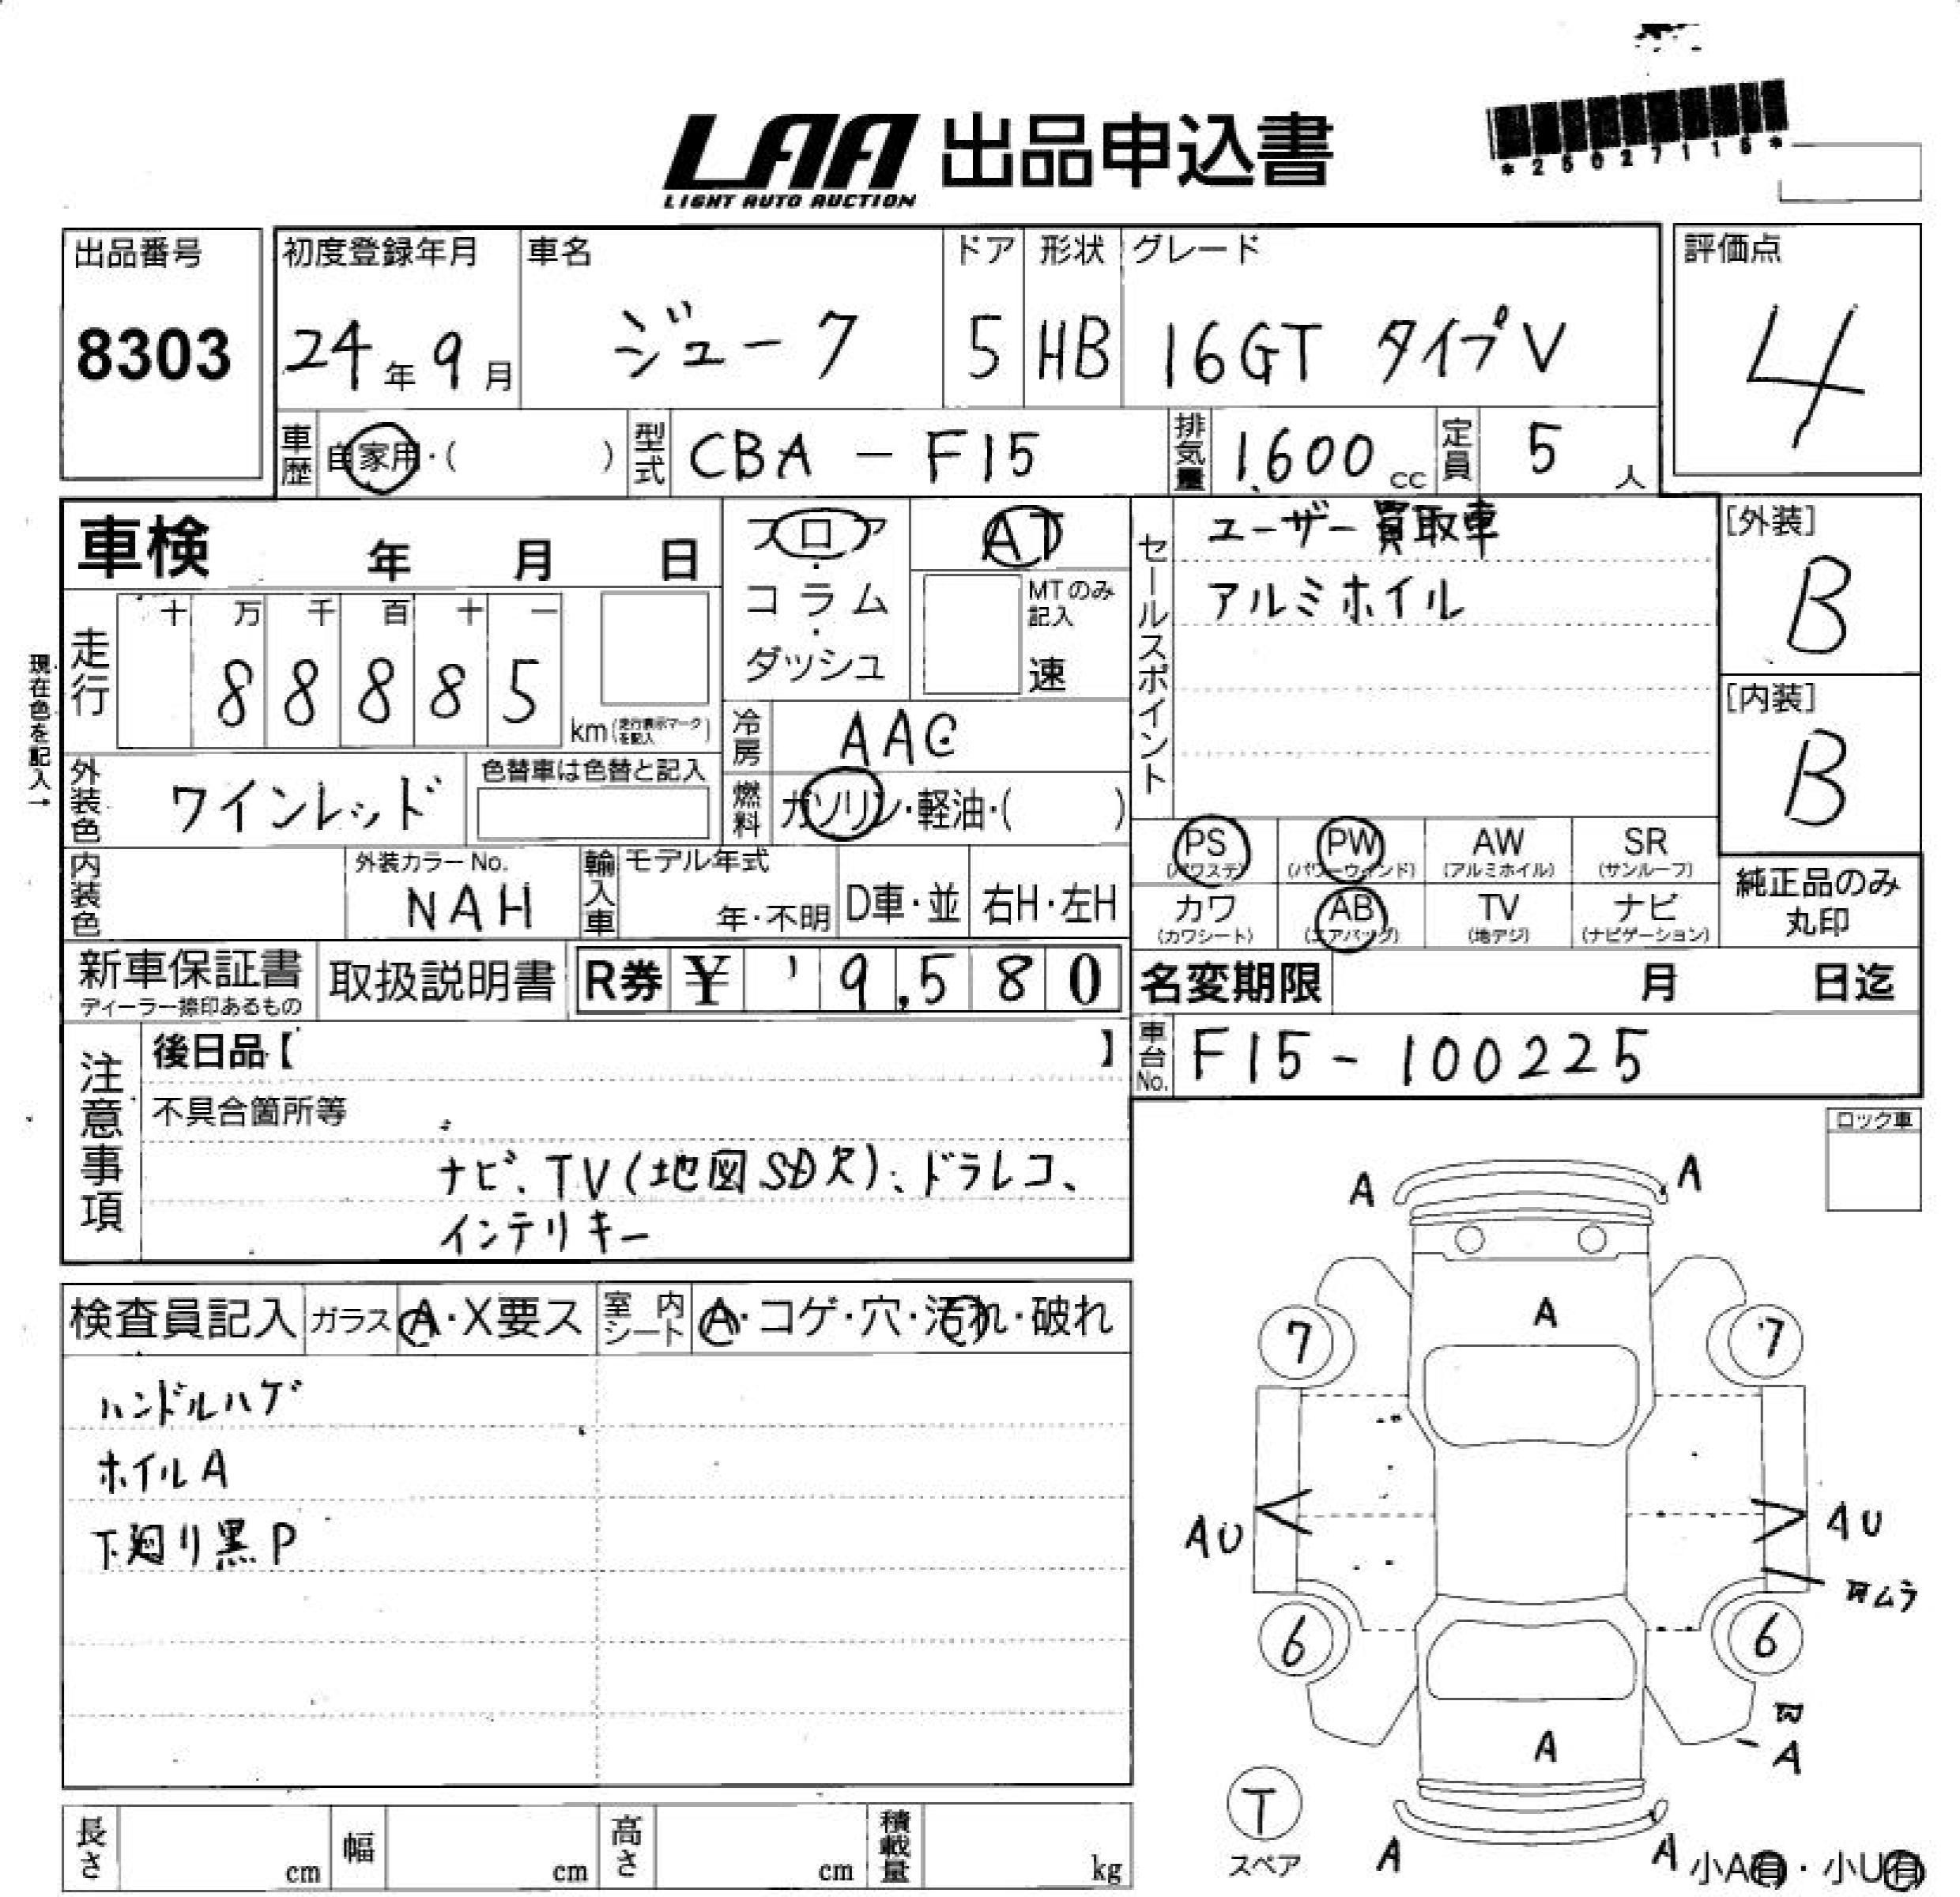 LAA 出品申込書
LIGHT AUTO AUCTION
*25027115*
出品番号
8303
初度登録年月
24年9月
車名
ジューク
ドア
5
形状
HB
グレード
16GT タイプV
評価点
4
車歴 自家用・( )
型式 CBA-F15
排気量 1,600cc
定員 5人
車検 年 月 日
走行
十 万 千 百 十 一
8 8 8 8 5
km (走行表示マークを記入)
現在色を記入→
フロア・コラム・ダッシュ
AT
MTのみ記入
速
冷房 AAC
燃料 ガソリン・軽油・( )
外装色 ワインレッド
色替車は色替と記入
内装色
外装カラーNo.
NAH
輸入車
モデル年式
年・不明
D車・並
右H・左H
セールスポイント
ユーザー買取車
アルミホイル
[外装]
B
[内装]
B
PS (パワステ)
PW (パワーウィンド)
AW (アルミホイル)
SR (サンルーフ)
カワ (カワシート)
AB (エアバッグ)
TV (地デジ)
ナビ (ナビゲーション)
純正品のみ
丸印
新車保証書
ディーラー捺印あるもの
取扱説明書
R券 ¥ 9,580
名変期限 月 日迄
車台No. F15-100225
注意事項
後日品【 】
不具合箇所等
ナビ、TV(地図SD欠)、ドラレコ、
インテリキー
ロック車
検査員記入
ガラス A・X要ス
室内シート A・コゲ・穴・汚れ・破れ
ハンドルハゲ
ホイルA
下廻り黒P
A
A
A
7
7
AU
AU
ムラ
6
6
A
A
T
スペア
A
A
小A有・小U有
長さ cm
幅 cm
高さ cm
積載量 kg